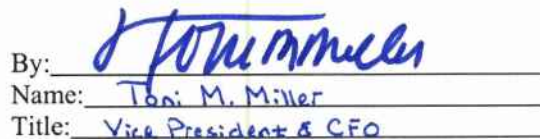 By: Toni M Miller
Name: Toni M. Miller
Title: Vice President & CFO